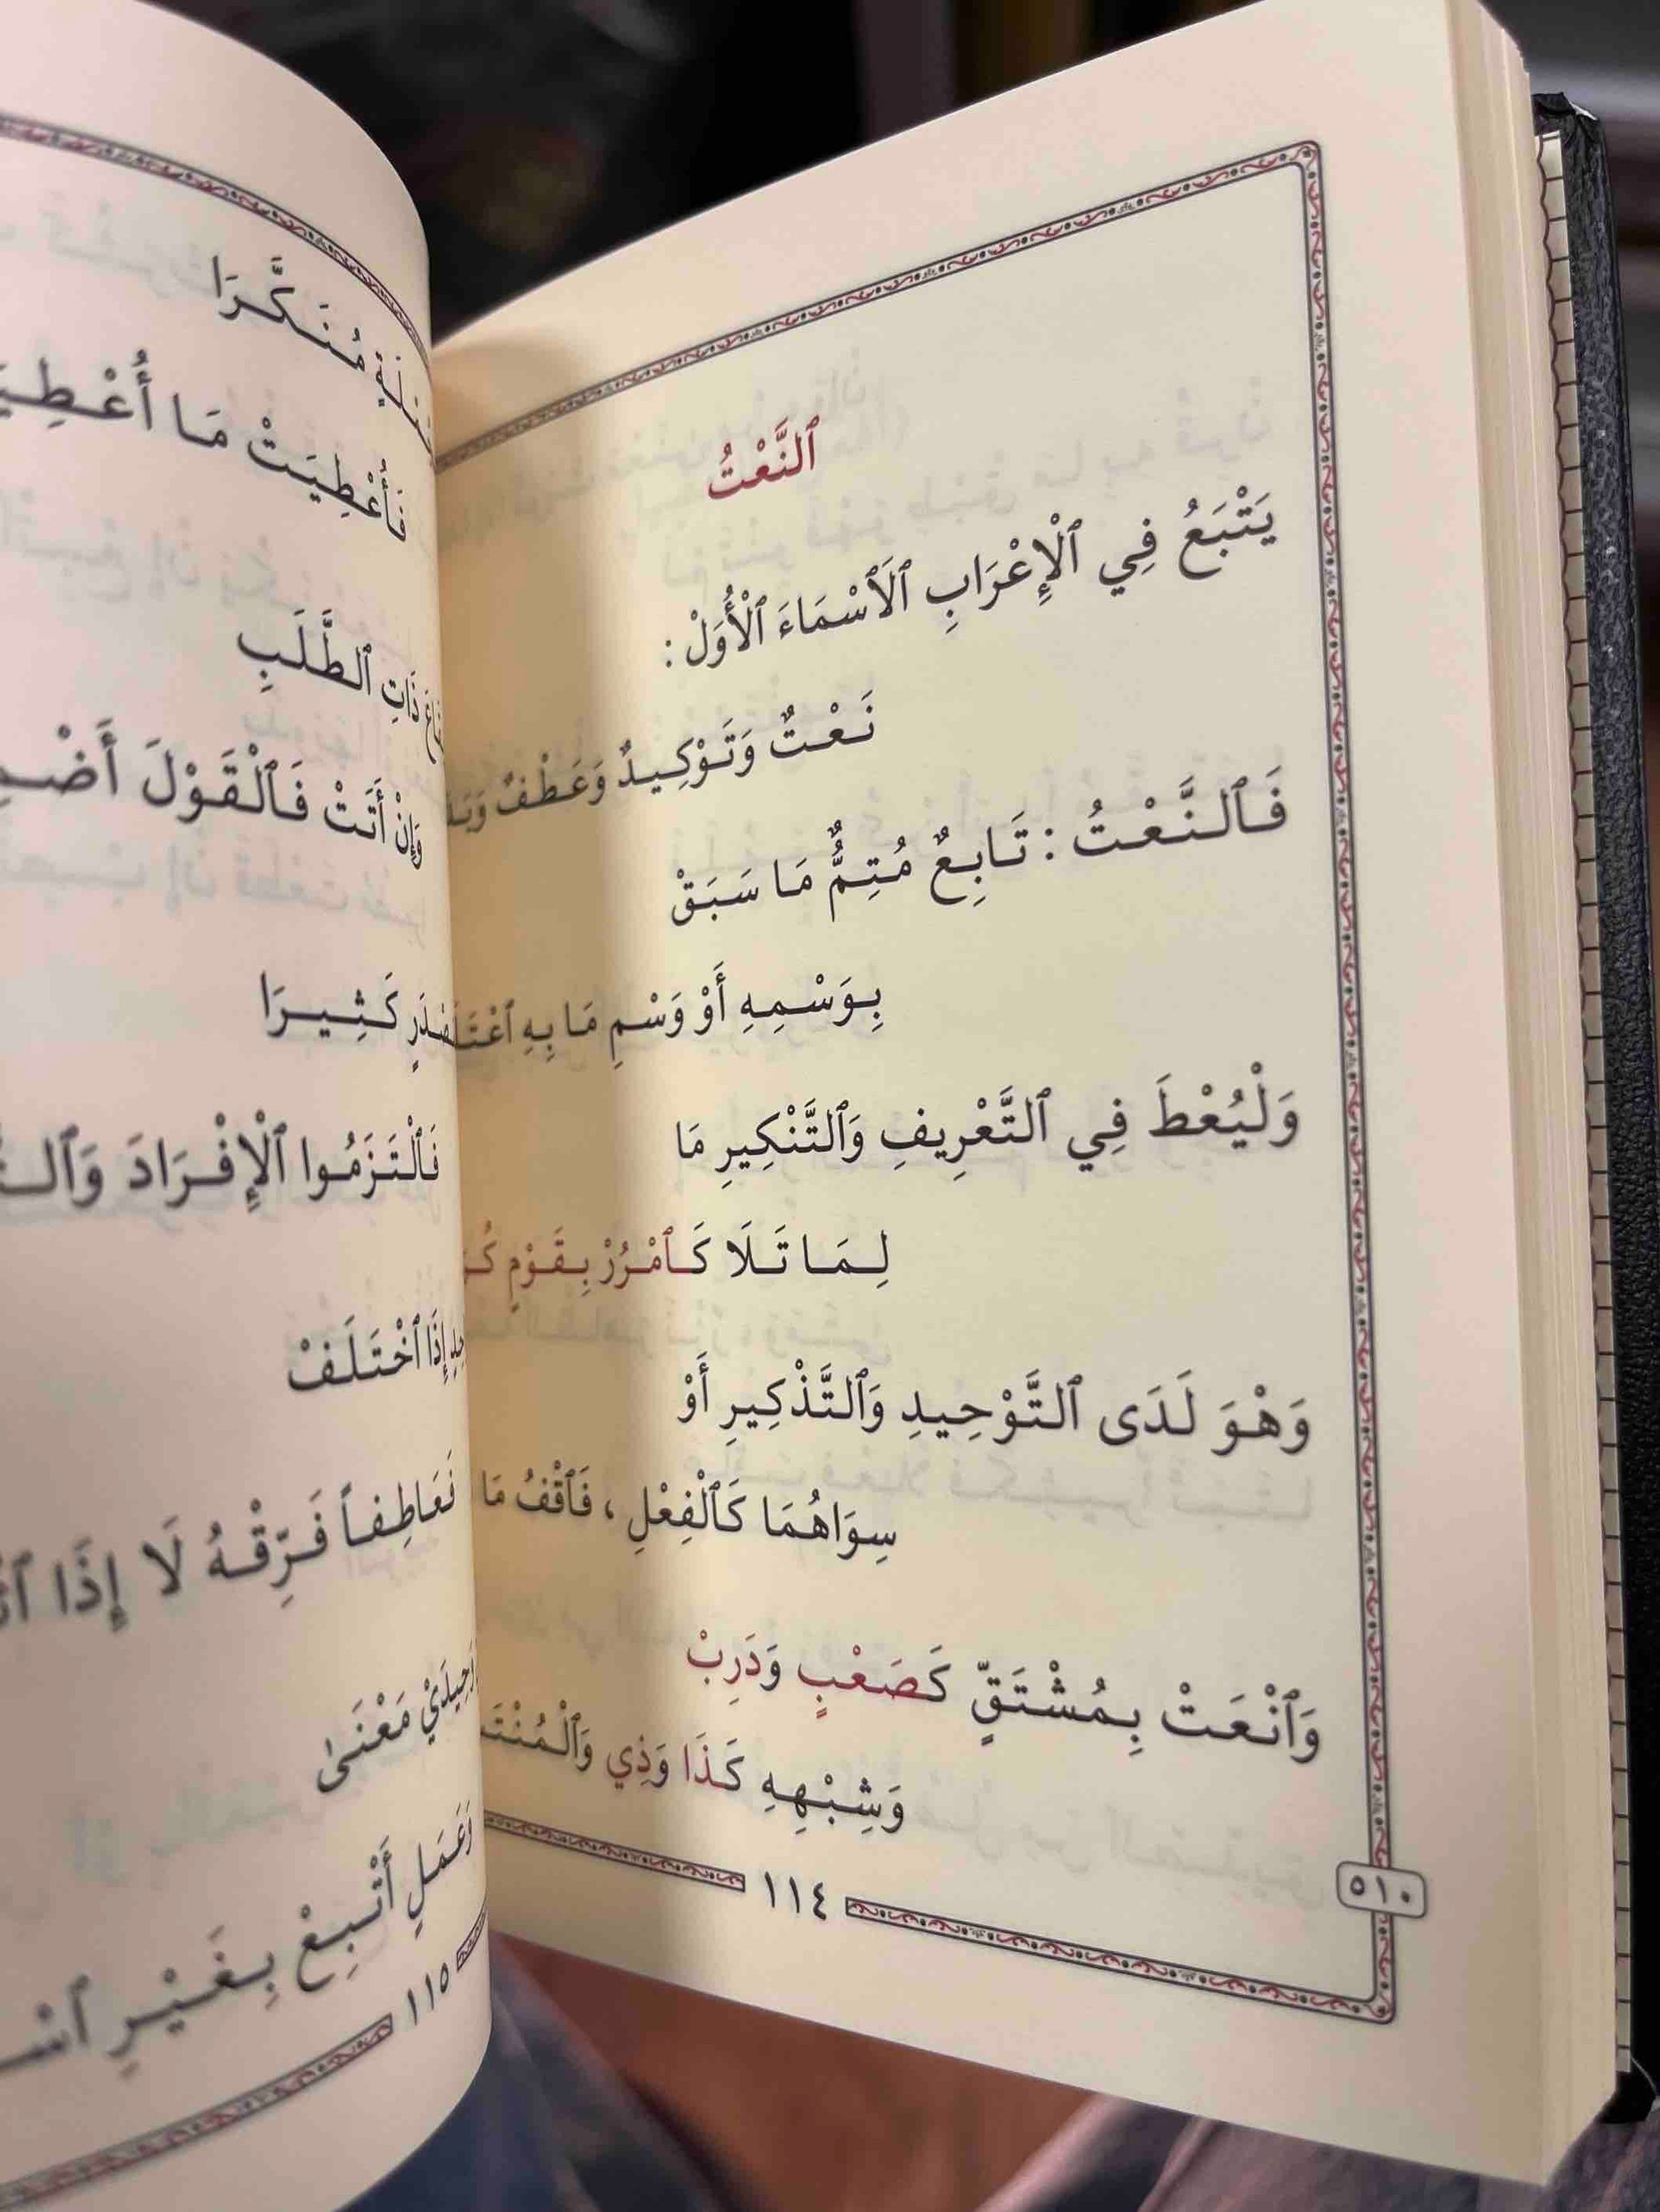 ٱلنَّعْتُ
يَتْبَعُ فِي ٱلْإِعْرَابِ ٱلَاسْمَاءَ ٱلْأُوَلْ :
نَعْتٌ وَتَوْكِيدٌ وَعَطْفٌ
فَٱلنَّعْتُ : تَابِعٌ مُتِمٌّ مَا سَبَقْ
بِوَسْمِهِ أَوْ وَسْمِ مَا بِهِ
وَلْيُعْطَ فِي ٱلتَّعْرِيفِ وَٱلتَّنْكِيرِ مَا
لِمَا تَلَا كَٱمْرُرْ بِقَوْمٍ
وَهْوَ لَدَى ٱلتَّوْحِيدِ وَٱلتَّذْكِيرِ أَوْ
سِوَاهُمَا كَٱلْفِعْلِ ، فَٱقْفُ مَا
وَٱنْعَتْ بِمُشْتَقٍّ كَصَعْبٍ وَدَرِبْ
وَشِبْهِهِ كَذَا وَذِي
٥١٠
١١٤
مُنَكَّرَا
فَأُعْطِيَتْ مَا
ذَاتِ ٱلطَّلَبِ
وَإِنْ أَتَتْ فَٱلْقَوْلَ
كَثِيرَا
فَٱلْتَزَمُوا ٱلْإِفْرَادَ
إِذَا ٱخْتَلَفْ
فَعَاطِفاً فَرِّقْهُ لَا إِذَا
مَعْنَىٰ
وَعَمَلٍ أَتْبِعْ بِغَيْرِ
١١٥